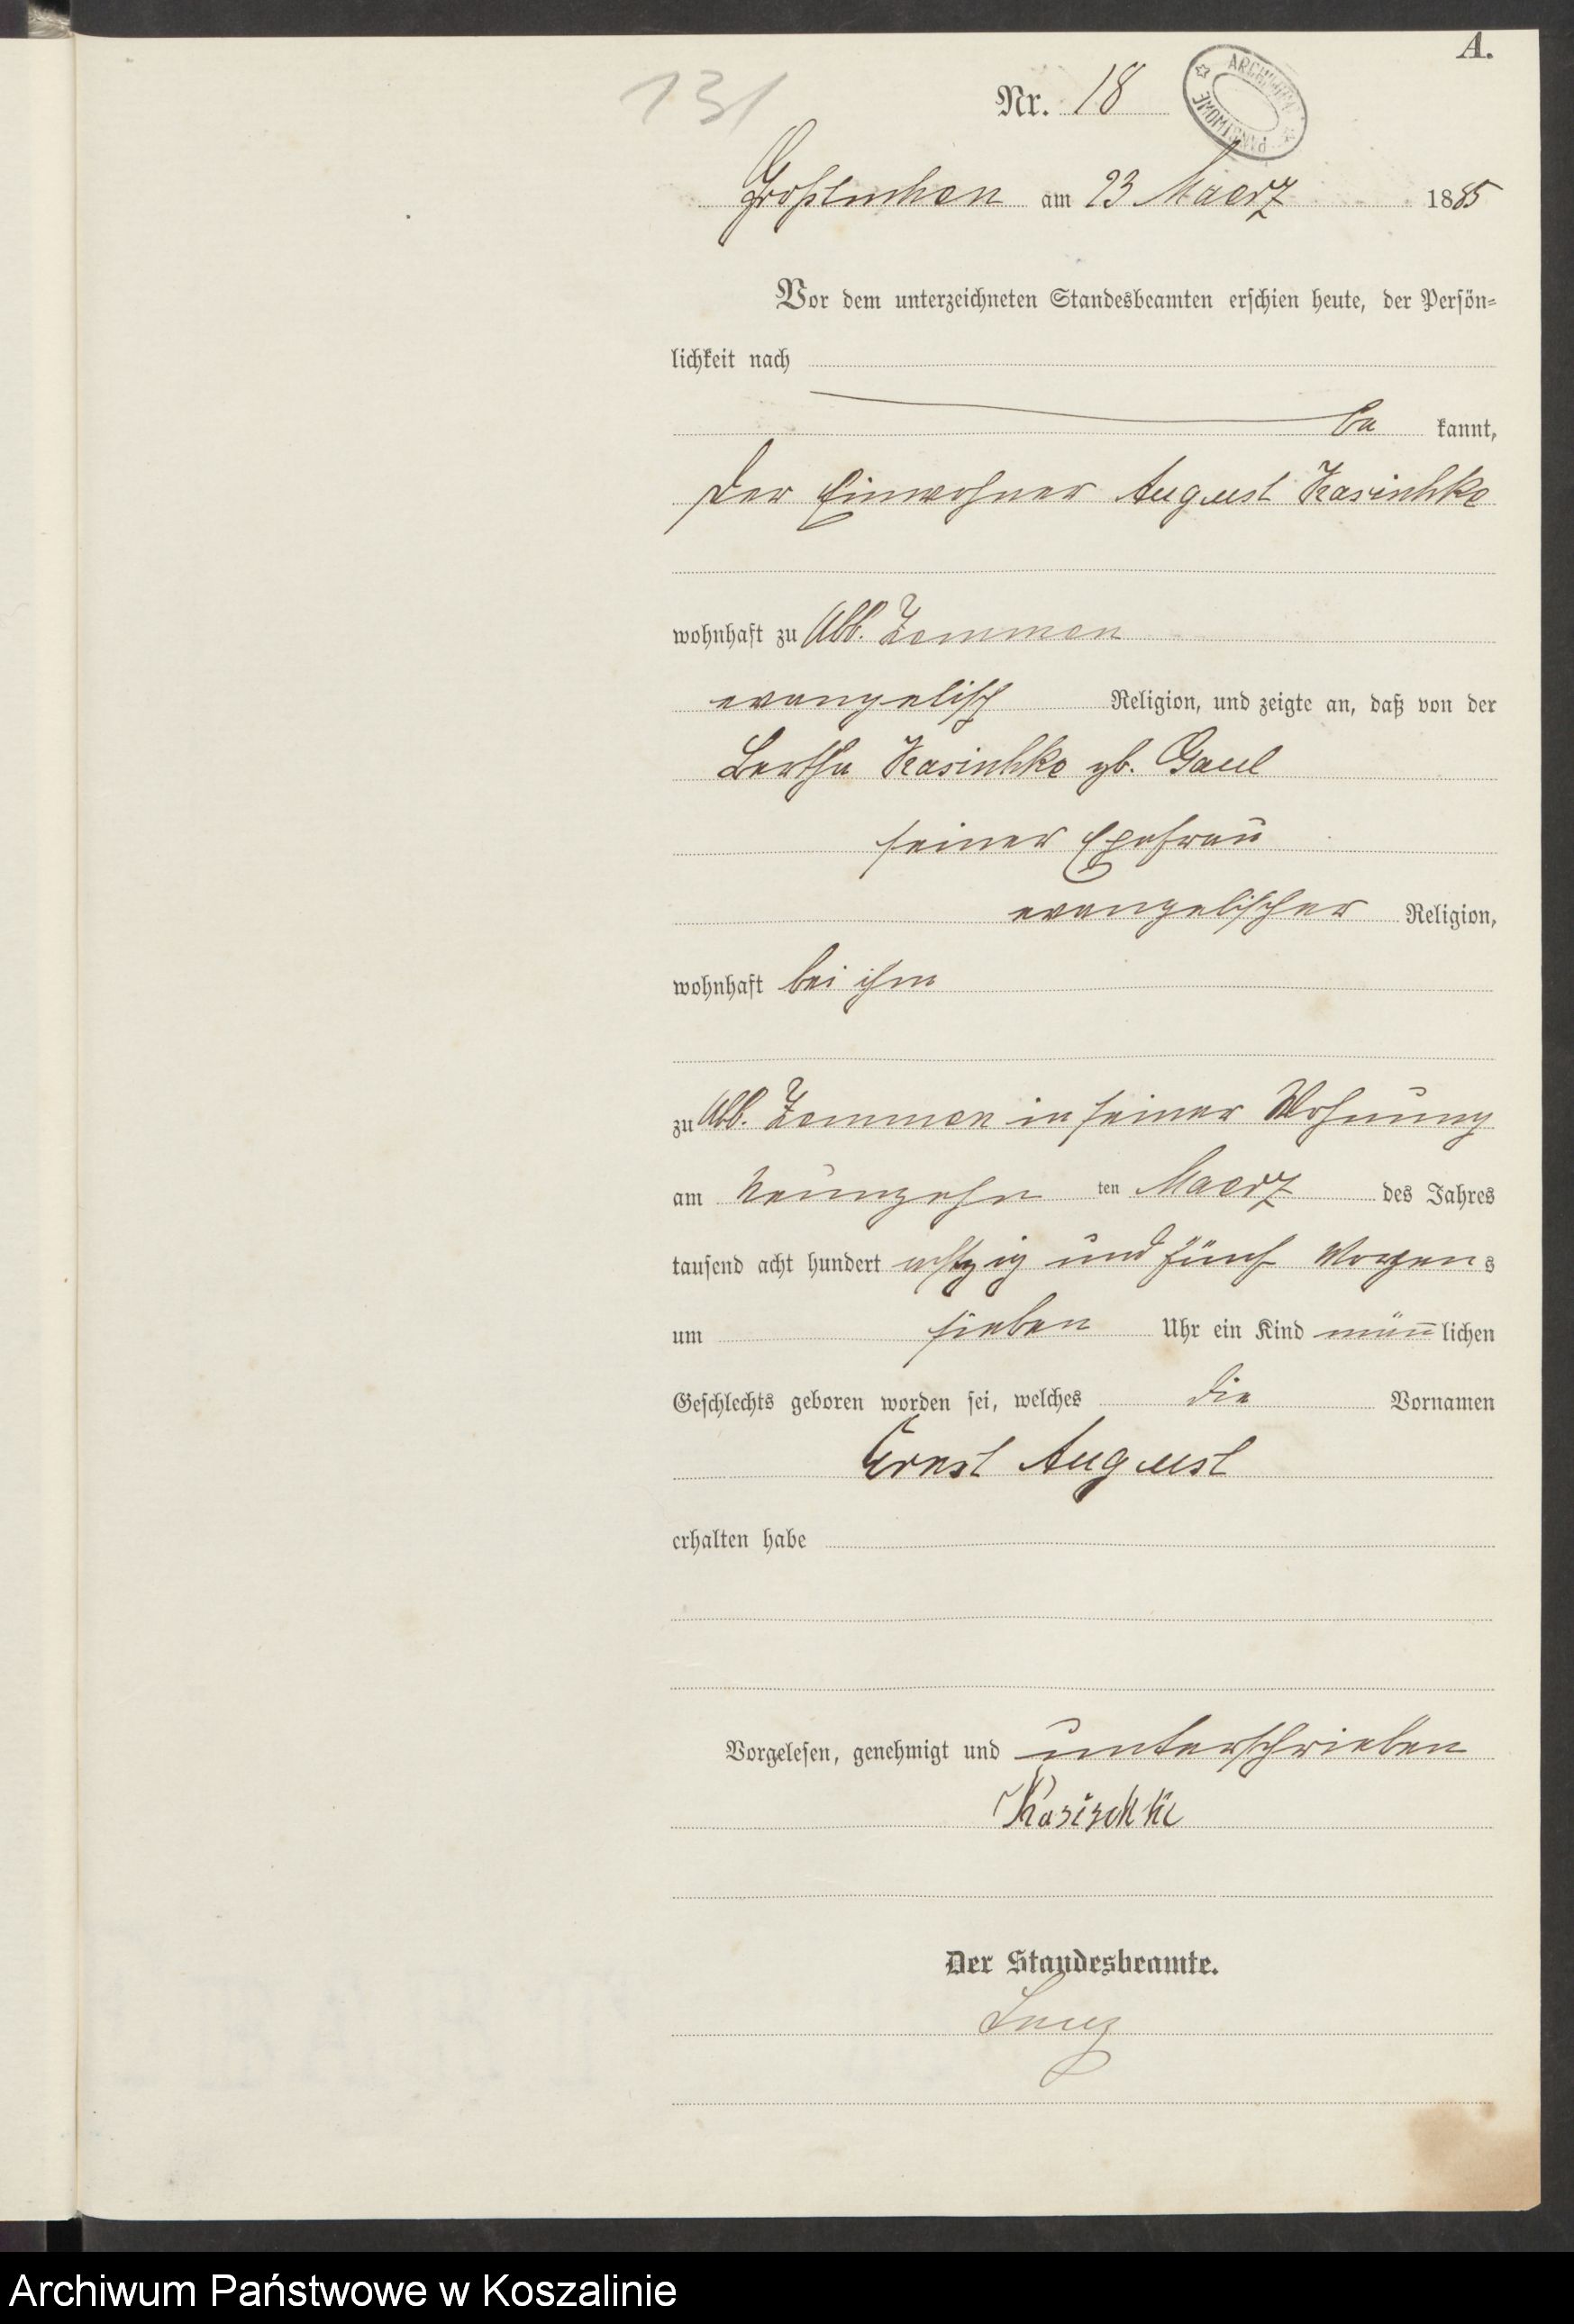 A.
131
Nr. 18
ARCHIWUM PAŃSTWOWE
Großtuchen am 23 Maerz 1885
Vor dem unterzeichneten Standesbeamten erschien heute, der Persön-
lichkeit nach
be kannt,
der Einwohner August Kasischke
wohnhaft zu Abb. Zemmen
evangelisch Religion, und zeigte an, daß von der
Bertha Kasischke gb. Gaul
seiner Ehefrau
evangelischer Religion,
wohnhaft bei ihm
zu Abb. Zemmen in seiner Wohnung
am neunzehn ten Maerz des Jahres
tausend acht hundert achtzig und fünf Morgens
um sieben Uhr ein Kind männlichen
Geschlechts geboren worden sei, welches die Vornamen
Ernst August
erhalten habe
Vorgelesen, genehmigt und unterschrieben
Kasischke
Der Standesbeamte.
Archiwum Państwowe w Koszalinie